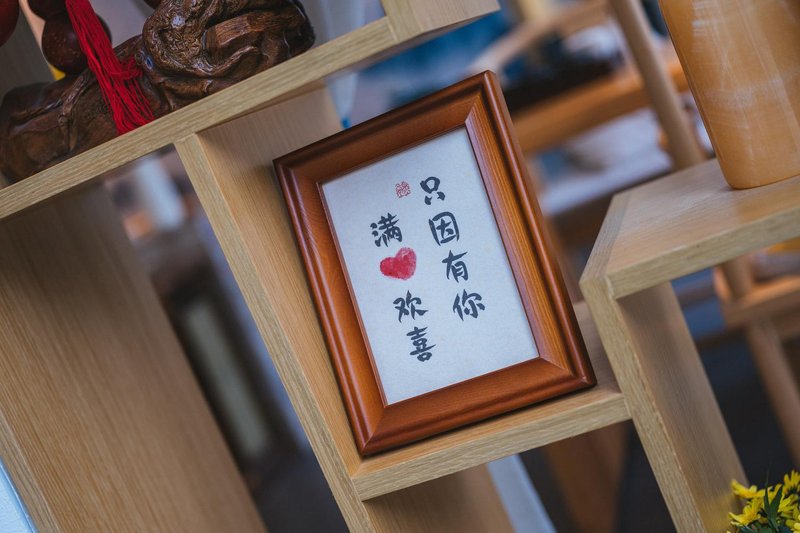 只因有你
满❤欢喜